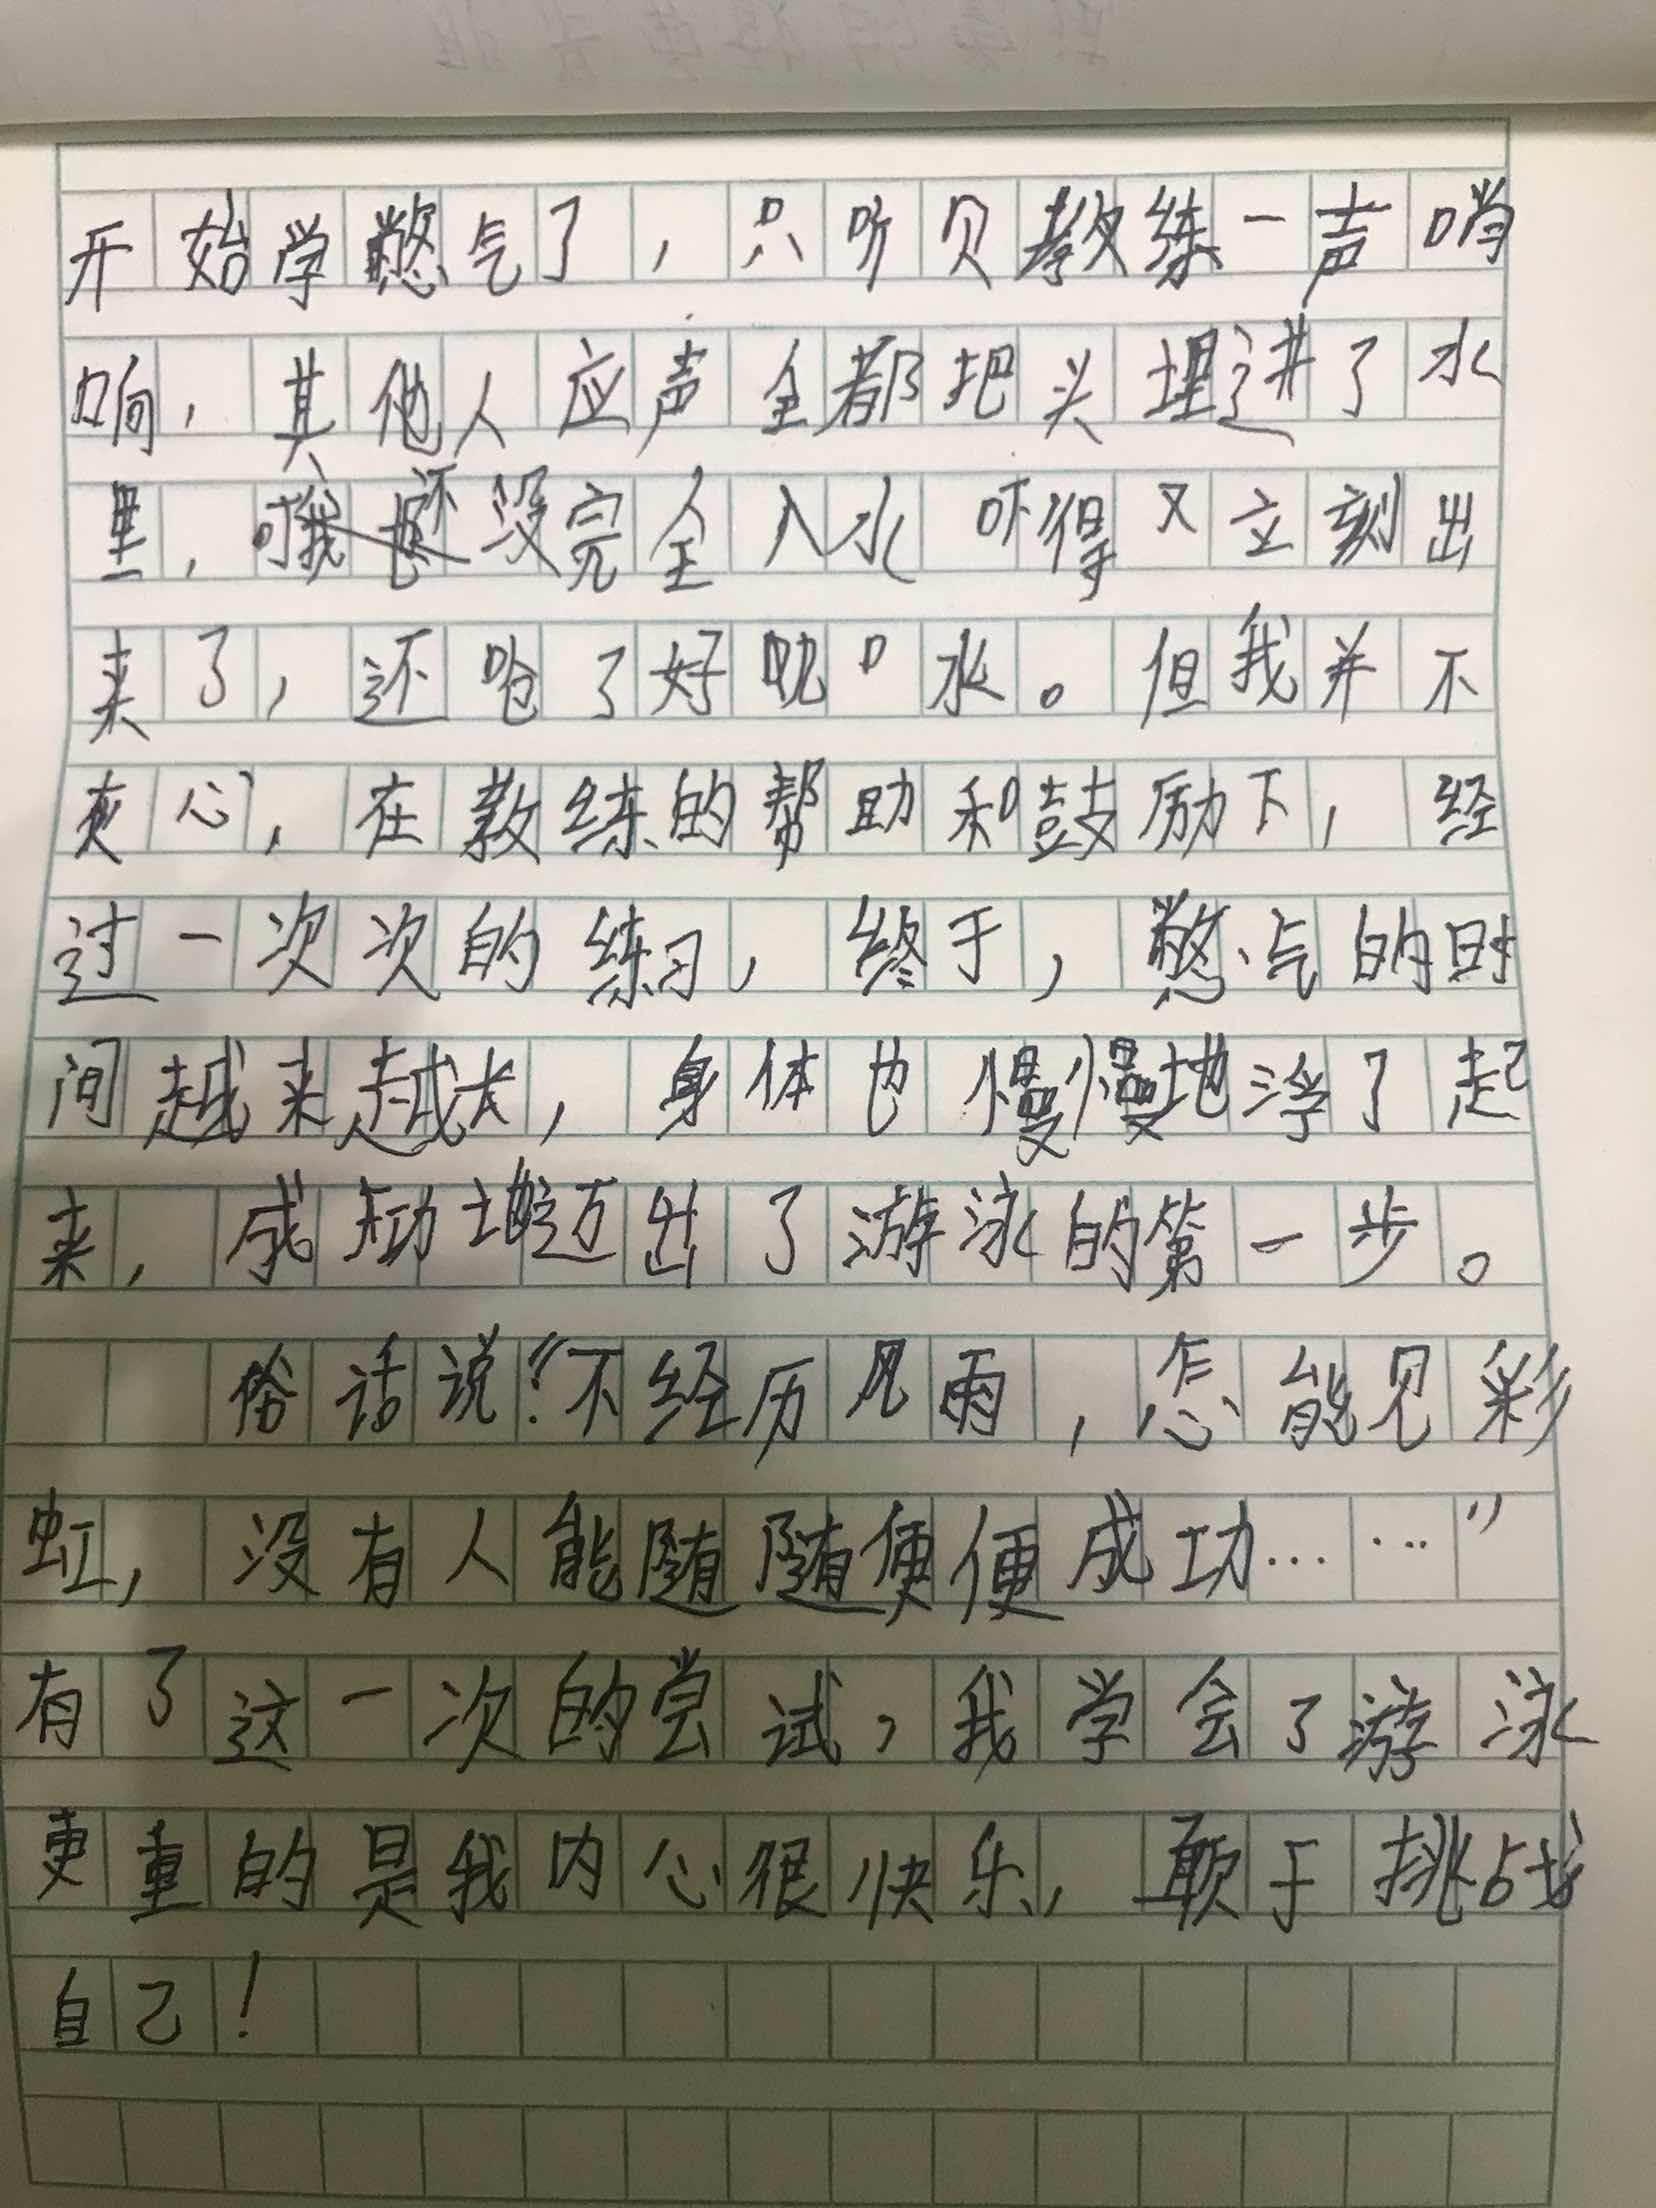 开始学憋气了，只听贝教练一声哨
响，其他人应声全都把头埋进了水
里，我还没完全入水 吓得又立刻出
来了，还呛了好几口水。但我并不
灰心，在教练的帮助和鼓励下，经
过一次次的练习，终于，憋气的时
间越来越长，身体也慢慢地浮了起
来，成功地迈出了游泳的第一步。
俗话说：“不经历风雨，怎能见彩
虹，没有人能随随便便成功……”
有了这一次的尝试，我学会了游泳
更重的是我内心很快乐，敢于挑战
自己！